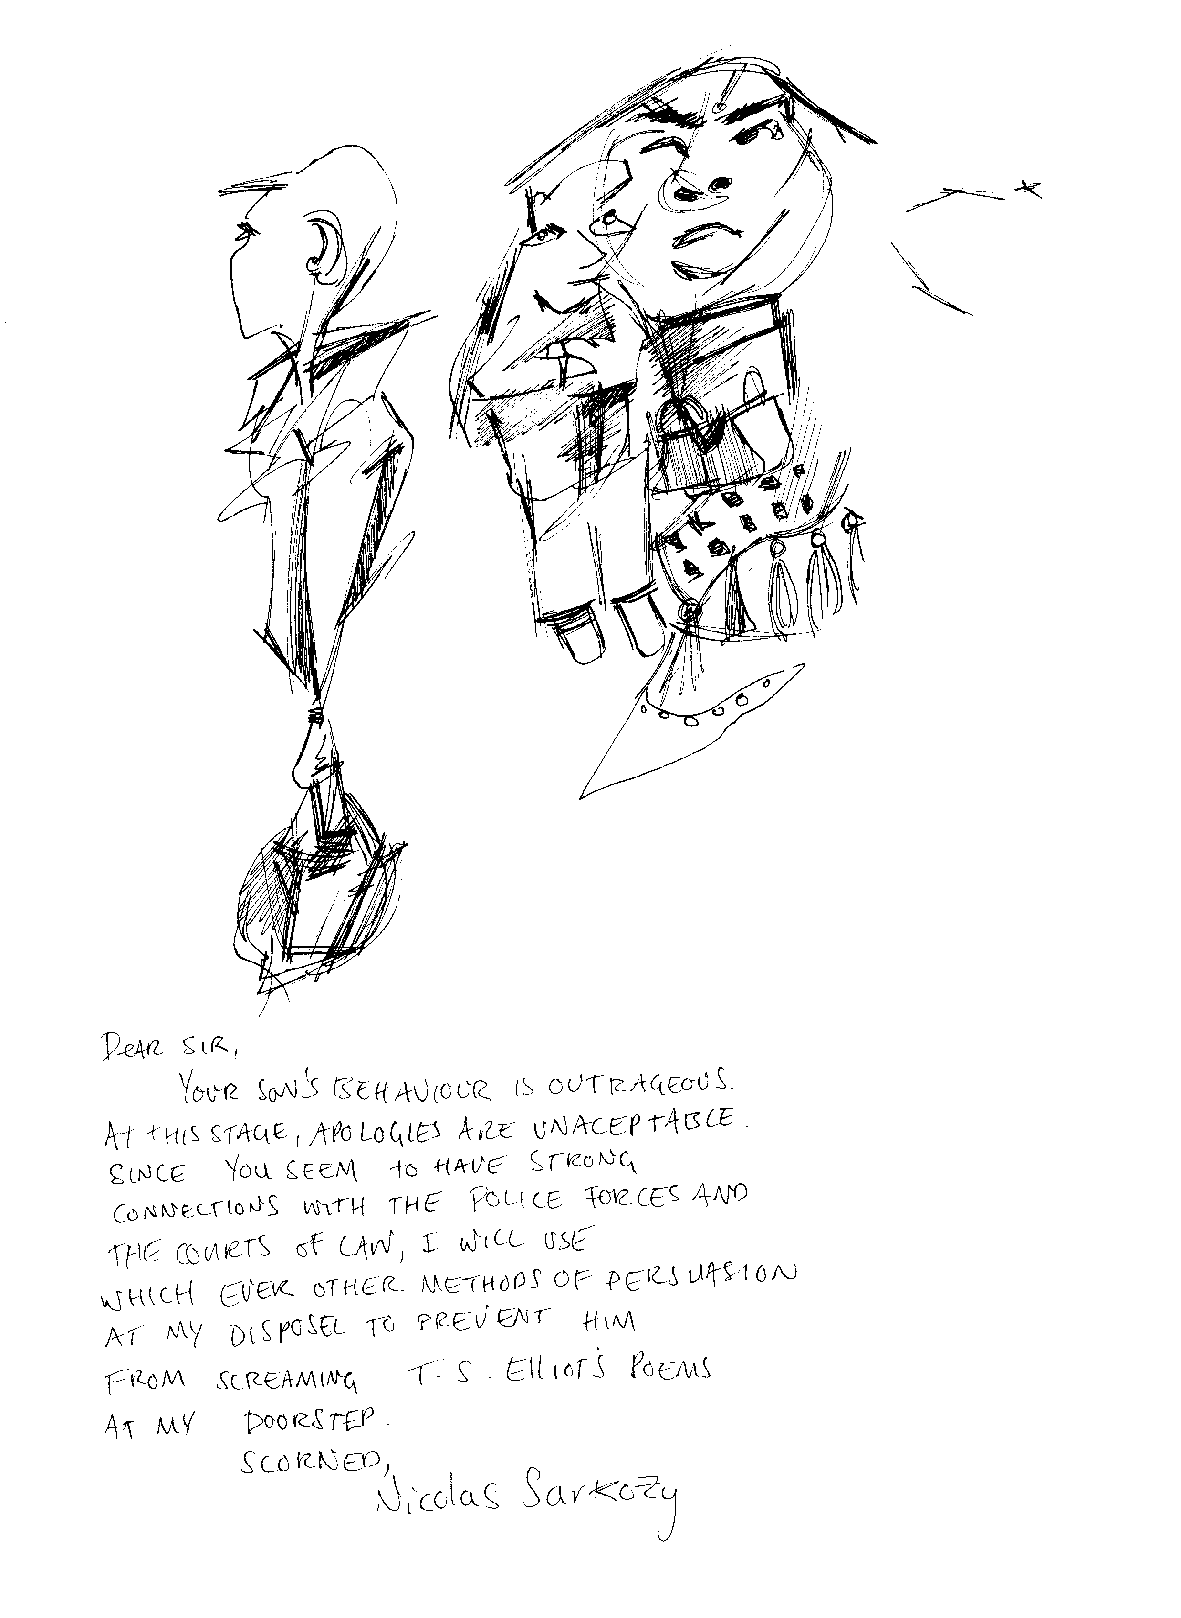 DEAR SIR,
YOUR SON'S BEHAVIOUR IS OUTRAGEOUS.
AT THIS STAGE, APOLOGIES ARE UNACEPTABLE.
SINCE YOU SEEM TO HAVE STRONG
CONNECTIONS WITH THE POLICE FORCES AND
THE COURTS OF LAW, I WILL USE
WHICH EVER OTHER METHODS OF PERSUASION
AT MY DISPOSEL TO PREVENT HIM
FROM SCREAMING T.S. ELLIOT'S POEMS
AT MY DOORSTEP.
SCORNED,
Nicolas Sarkozy